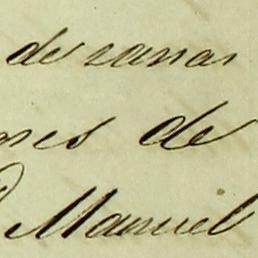 de ranas
nes de
Manuel